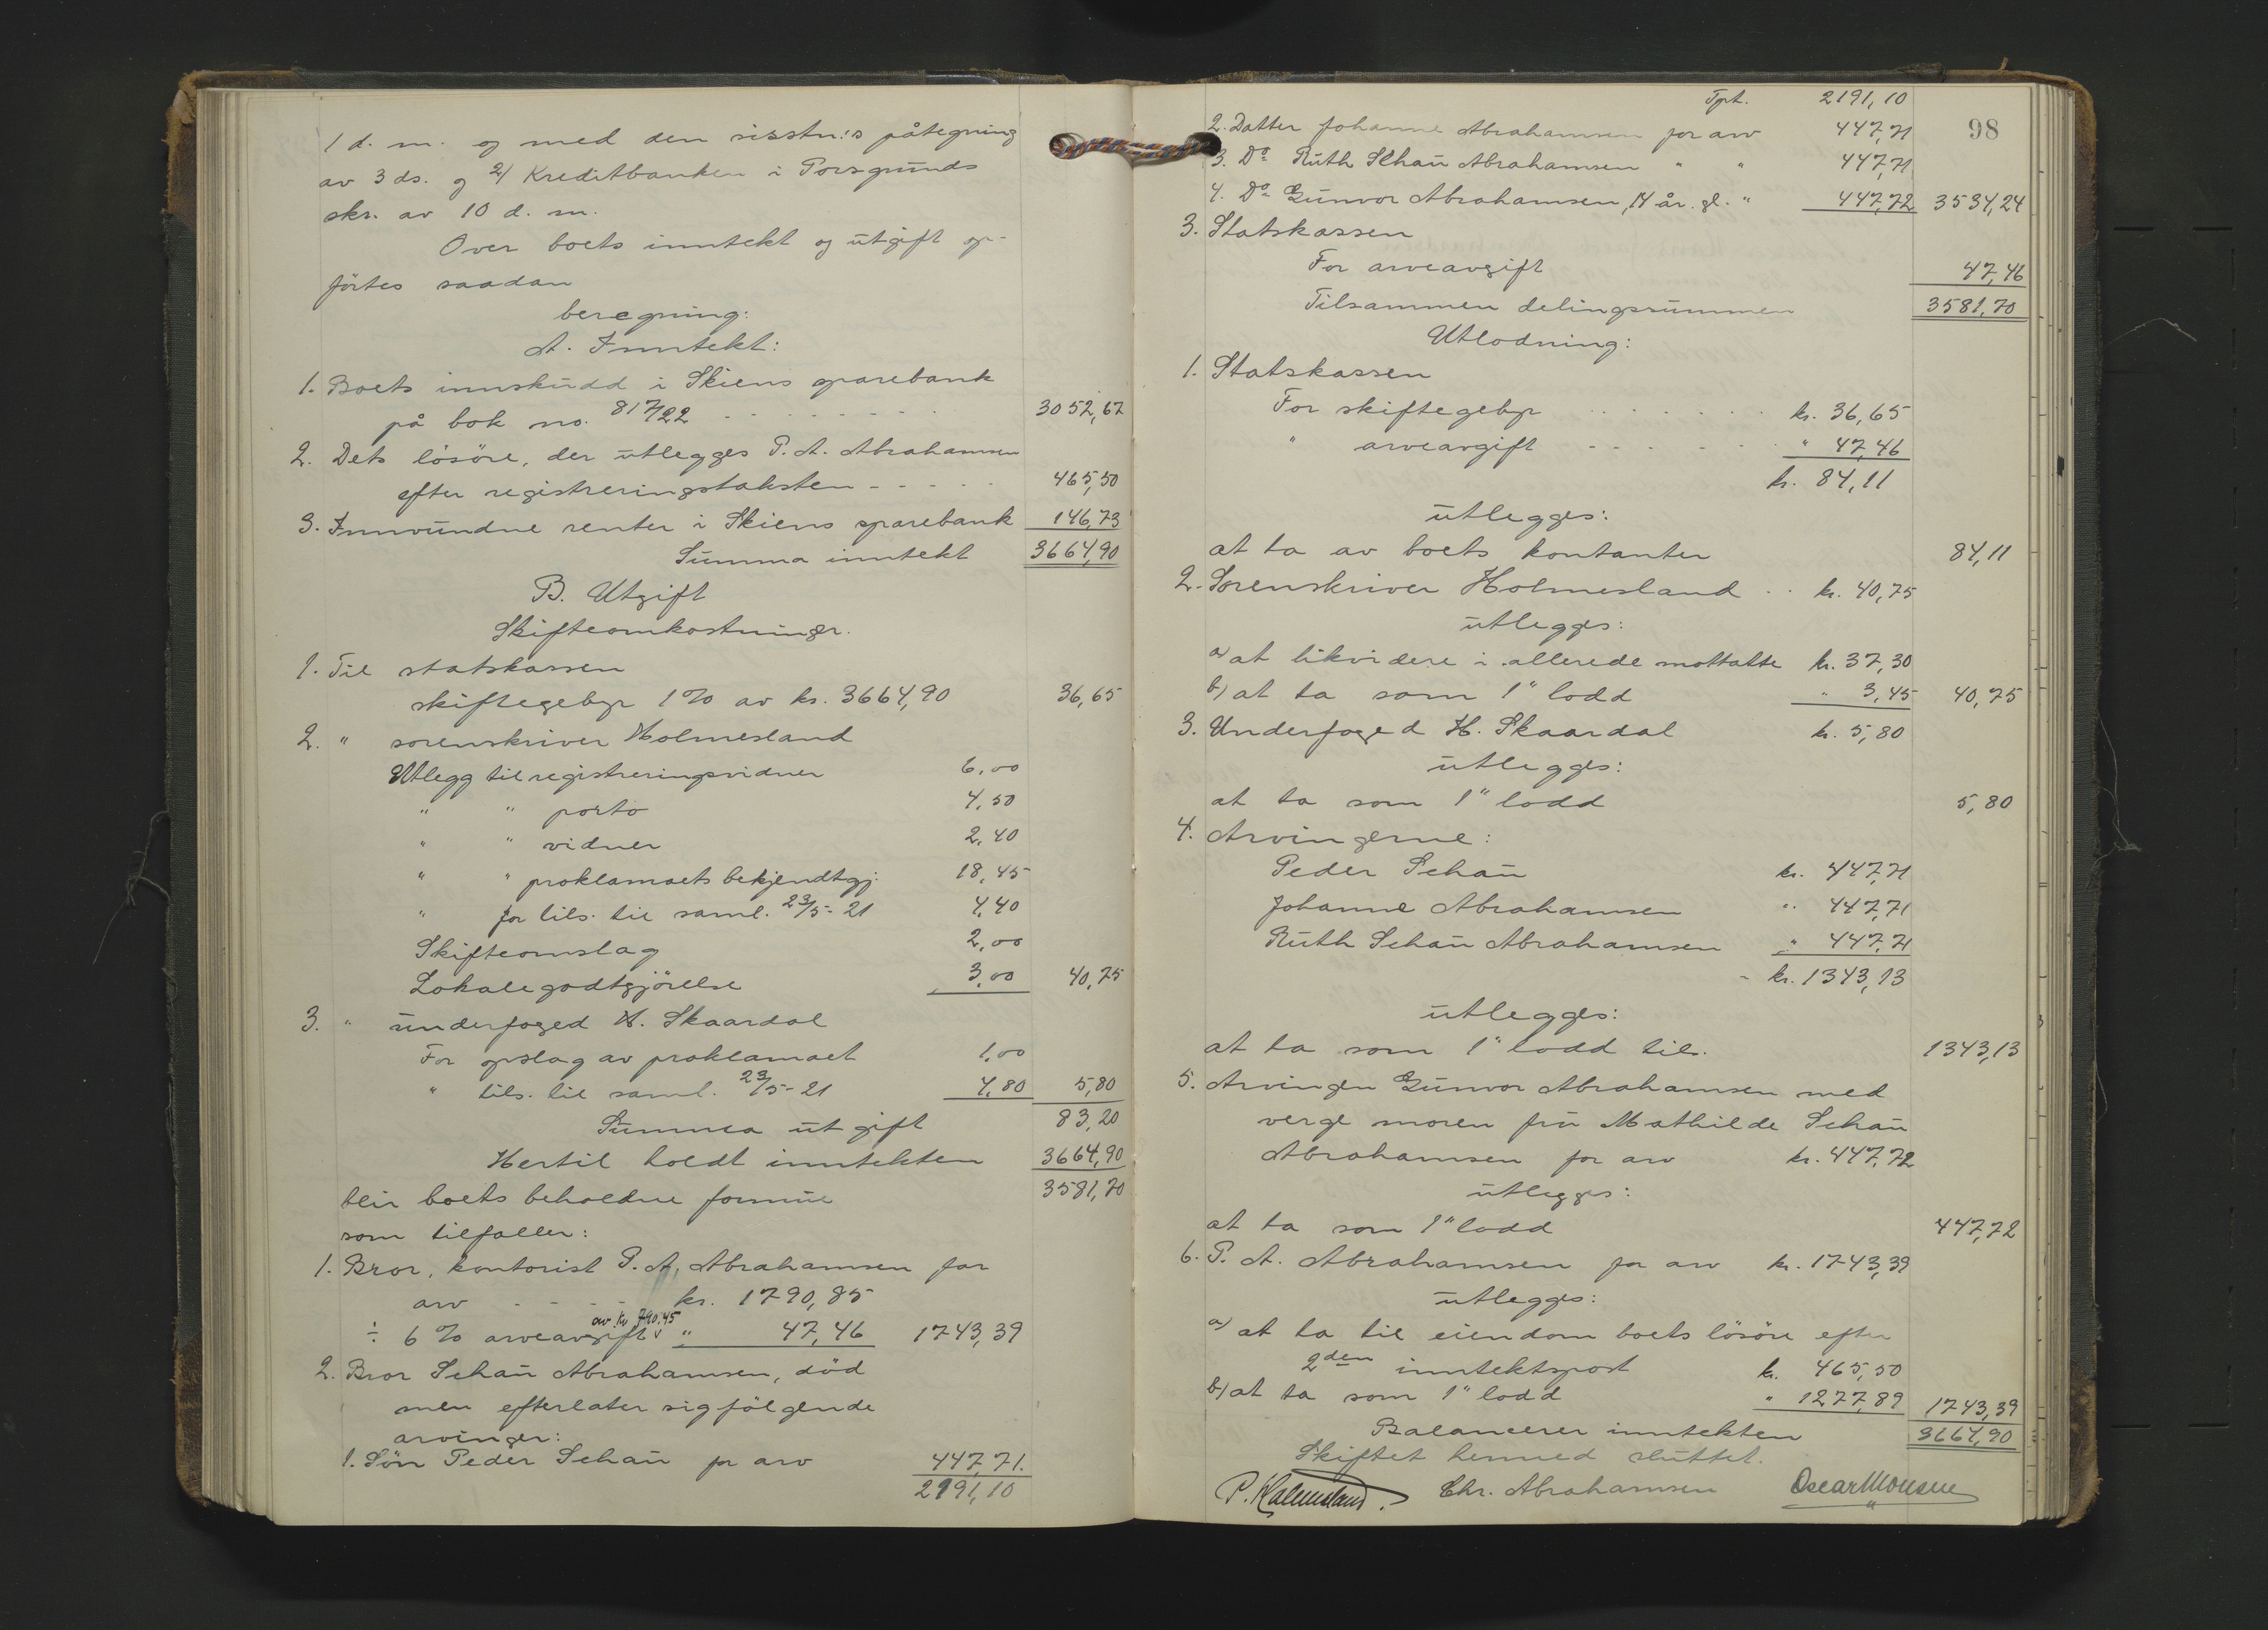 1 d. m. og med den sisstn:s påtegning
av 3 ds. og 2) Kreditbanken i Porsgrunds
skr. av 10 d. m.
Over boets inntekt og utgift op-
førtes saadan
beregning:
A. Inntekt:
1. Boets innskudd i Skiens sparebank
på bok no. 817/22 - - - - - - - - 3052,67
2. Dets løsøre, der utlegges P. A. Abrahamsen
efter registreringstaksten - - - - - 465,50
3. Innvundne renter i Skiens sparebank 146,73
Summa inntekt 3664,90
B. Utgift
Skifteomkostninger.
1. Til statskassen
skiftegebyr 1% av kr. 3664,90 36,65
2. " sorenskriver Holmesland
Utlegg til registreringsvidner 6,00
" " porto 4,50
" " vidner 2,40
" " proklamaets bekjendtgj: 18,45
" for tils. til saml. 23/5-21 4,40
Skifteomslag 2,00
Lokalegodtgjörelse 3,00 40,75
3. " underfoged H. Skaardal
For opslag av proklamaet 1,00
" tils. til saml. 23/5-21 4,80 5,80
Summa utgift 83,20
Hertil holdt inntekten 3664,90
blir boets beholdne formue 3581,70
som tilfaller:
1. Bror, kontorist P. A. Abrahamsen for
arv - - - - kr. 1790,85
av kr 790,45
÷ 6% arveavgift v " 47,46 1743,39
2. Bror Schau Abrahamsen, död
men efterlater sig fölgende
arvinger:
1. Sön Peder Schau for arv 447,71.
2191,10
Tprt. 2191,10
98
2. Datter Johanne Abrahamsen for arv 447,71
3. Do Ruth Schau Abrahamsen " " 447,71
4. Do Gunvor Abrahamsen, 14 år. gl. " 447,72 3534,24
3. Statskassen
For arveavgift 47,46
Tilsammen delingssummen 3581,70
Utlodning:
1. Statskassen
For skiftegebyr - - - - - - kr. 36,65
" arveavgift - - - - - - " 47,46
kr. 84,11
utlegges:
at ta av boets kontanter 84,11
2. Sorenskriver Holmesland - - kr. 40,75
utlegges:
a) at likvidere i allerede mottatte kr. 37,30
b) at ta som 1" lodd " 3,45 40,75
3. Underfoged H. Skaardal kr. 5,80
utlegges:
at ta som 1" lodd 5,80
4. Arvingerne:
Peder Schau kr. 447,71
Johanne Abrahamsen " 447,71
Ruth Schau Abrahamsen " 447,71
- kr. 1343,13
utlegges:
at ta som 1" lodd tils. 1343,13
5. Arvingen Gunvor Abrahamsen med
verge moren fru Mathilde Schau
Abrahamsen for arv kr. 447,72
utlegges:
at ta som 1" lodd 447,72
6. P. A. Abrahamsen for arv kr. 1743,39
utlegges:
a) at ta til eiendom boets lösöre efter
2den inntektspost kr. 465,50
b) at ta som 1" lodd " 1277,89 1743,39
Balancerer inntekten 3664,90
Skiftet hermed sluttet.
P. Holmesland. Chr. Abrahamsen Oscar Monsen